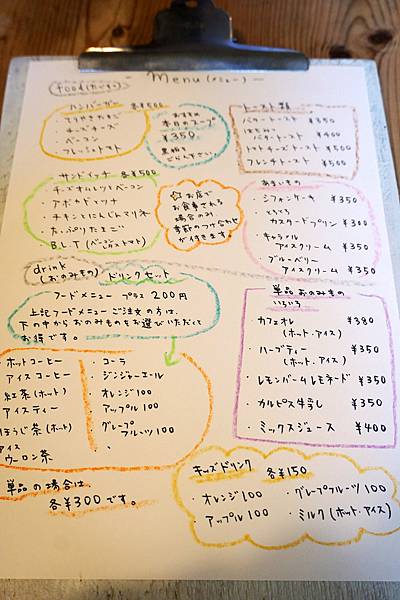 - Menu (メニュー) -
food (たべもの)
ハンバーガー 各¥500
・てりやきたまご
・チーズチーズ
・ベーコン
・フレッシュトマト
おすすめ
本日のスープ
¥350
黒板を
ごらん下さい
トースト類
・バタートースト ¥350
・はちみつ
バタートースト ¥400
・トマトチーズトースト ¥500
・フレンチトースト ¥500
サンドイッチ 各¥500
・チーズオムレツとベーコン
・アボカドツナ
・チキンとにんじんマリネ
・たっぷりたまご
・B.L.T (ベーコンレタストマト)
☆お店で
お食事される
場合のみ
季節のつけ合わせ
が付きます。
あまいもの
・シフォンケーキ ¥350
・とろとろ
カスタードプリン ¥300
・キャラメル
アイスクリーム ¥350
・ブルーベリー
アイスクリーム ¥350
drink
(おのみもの) ドリンクセット
フードメニュー プラス 200円
上記フードメニューご注文の方は、
下の中からおのみものをお選びいただくて
お得です。
・ホットコーヒー
アイスコーヒー
紅茶(ホット)
アイスティー
ほうじ茶(ホット)
アイス
ウーロン茶
・コーラ
・ジンジャーエール
・オレンジ100
・アップル100
・グレープ
フルーツ100
単品の場合は
各¥300です。
単品おのみもの
いろいろ
・カフェオレ ¥380
(ホット・アイス)
・ハーブティー ¥350
(ホット・アイス)
・レモンバームレモネード ¥350
・カルピス牛乳 ¥350
・ミックスジュース ¥400
キッズドリンク 各¥150
・オレンジ100 ・グレープフルーツ100
・アップル100 ・ミルク(ホット・アイス)